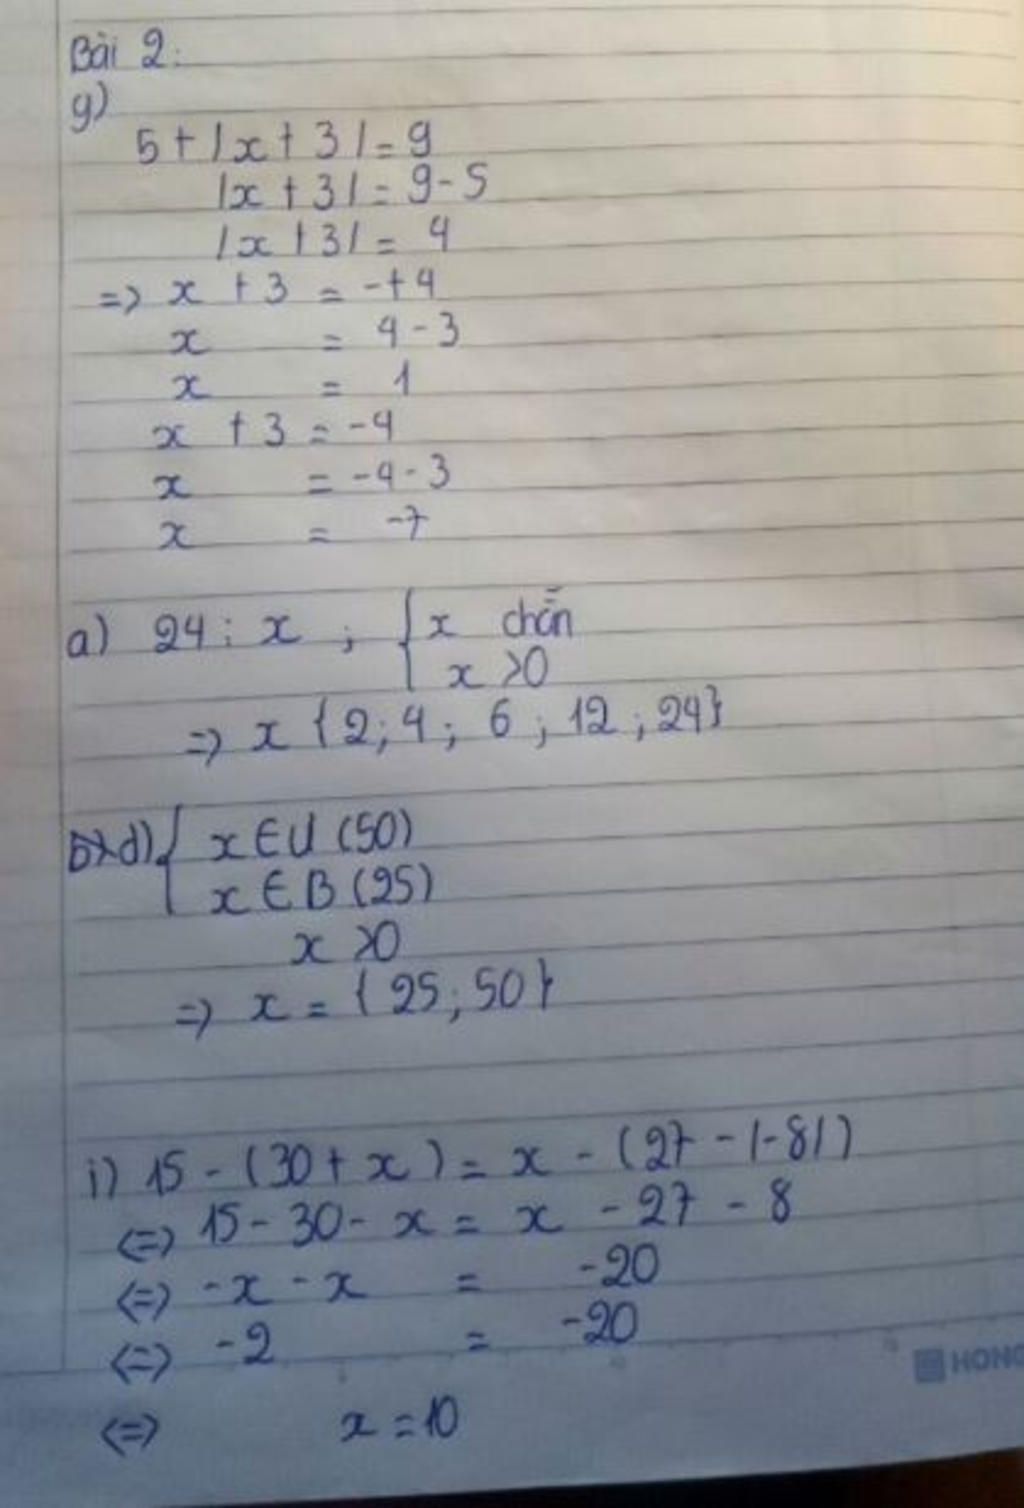 Bài 2:
g)
5 + |x + 3| = 9
|x + 3| = 9 - 5
|x + 3| = 4
=> x + 3 = -+4
x = 4 - 3
x = 1
x + 3 = -4
x = -4 - 3
x = -7
a) 24 : x ; { x chẵn
x >0
=> x {2; 4; 6; 12; 24}
d) { x ∈ Ư (50)
x ∈ B (25)
x >0
=> x = {25; 50}
i) 15 - (30 + x) = x - (27 - |-8|)
<=> 15 - 30 - x = x - 27 - 8
<=> -x - x = -20
<=> -2 = -20
<=> x = 10
HONG